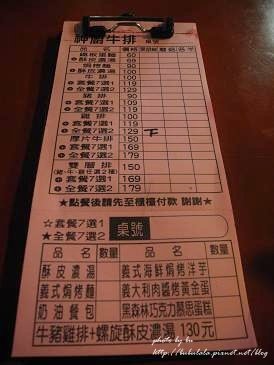 神廚牛排
品名 價格
鐵板蛋麵 60
酥皮濃湯 60
焗烤麵 90
牛排 100
套餐7選1 119
全餐7選2 129
豬排 90
套餐7選1 109
全餐7選2 119
雞排 100
套餐7選1 119
全餐7選2 129
厚片牛排 150
套餐7選1 169
全餐7選2 179
雙層排 150
套餐7選1 169
全餐7選2 179
★點餐後請先至櫃檯付款 謝謝★
☆套餐7選1
★全餐7選2
桌號
品名 數量 品名 數量
酥皮濃湯 義式海鮮焗烤洋芋
義式焗烤麵 義大利肉醬烤黃金蛋
奶油餐包 黑森林巧克力慕思蛋糕
牛豬雞排+螺旋酥皮濃湯 130元
photo by bu
http://bubulala.pixnet.net/blog